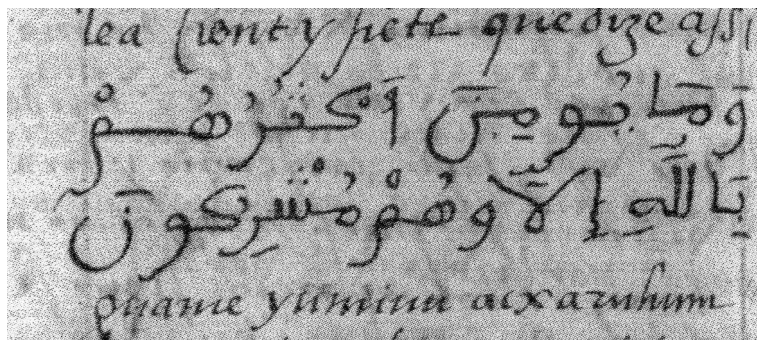 lea cient y siete que dize assi
وَمَا يُومِنَ اَكْثَرُهُمْ
بِاللَّهِ إِلاَّ وَهُمْ مُشْرِكُونَ
guame yuminu acxaruhum